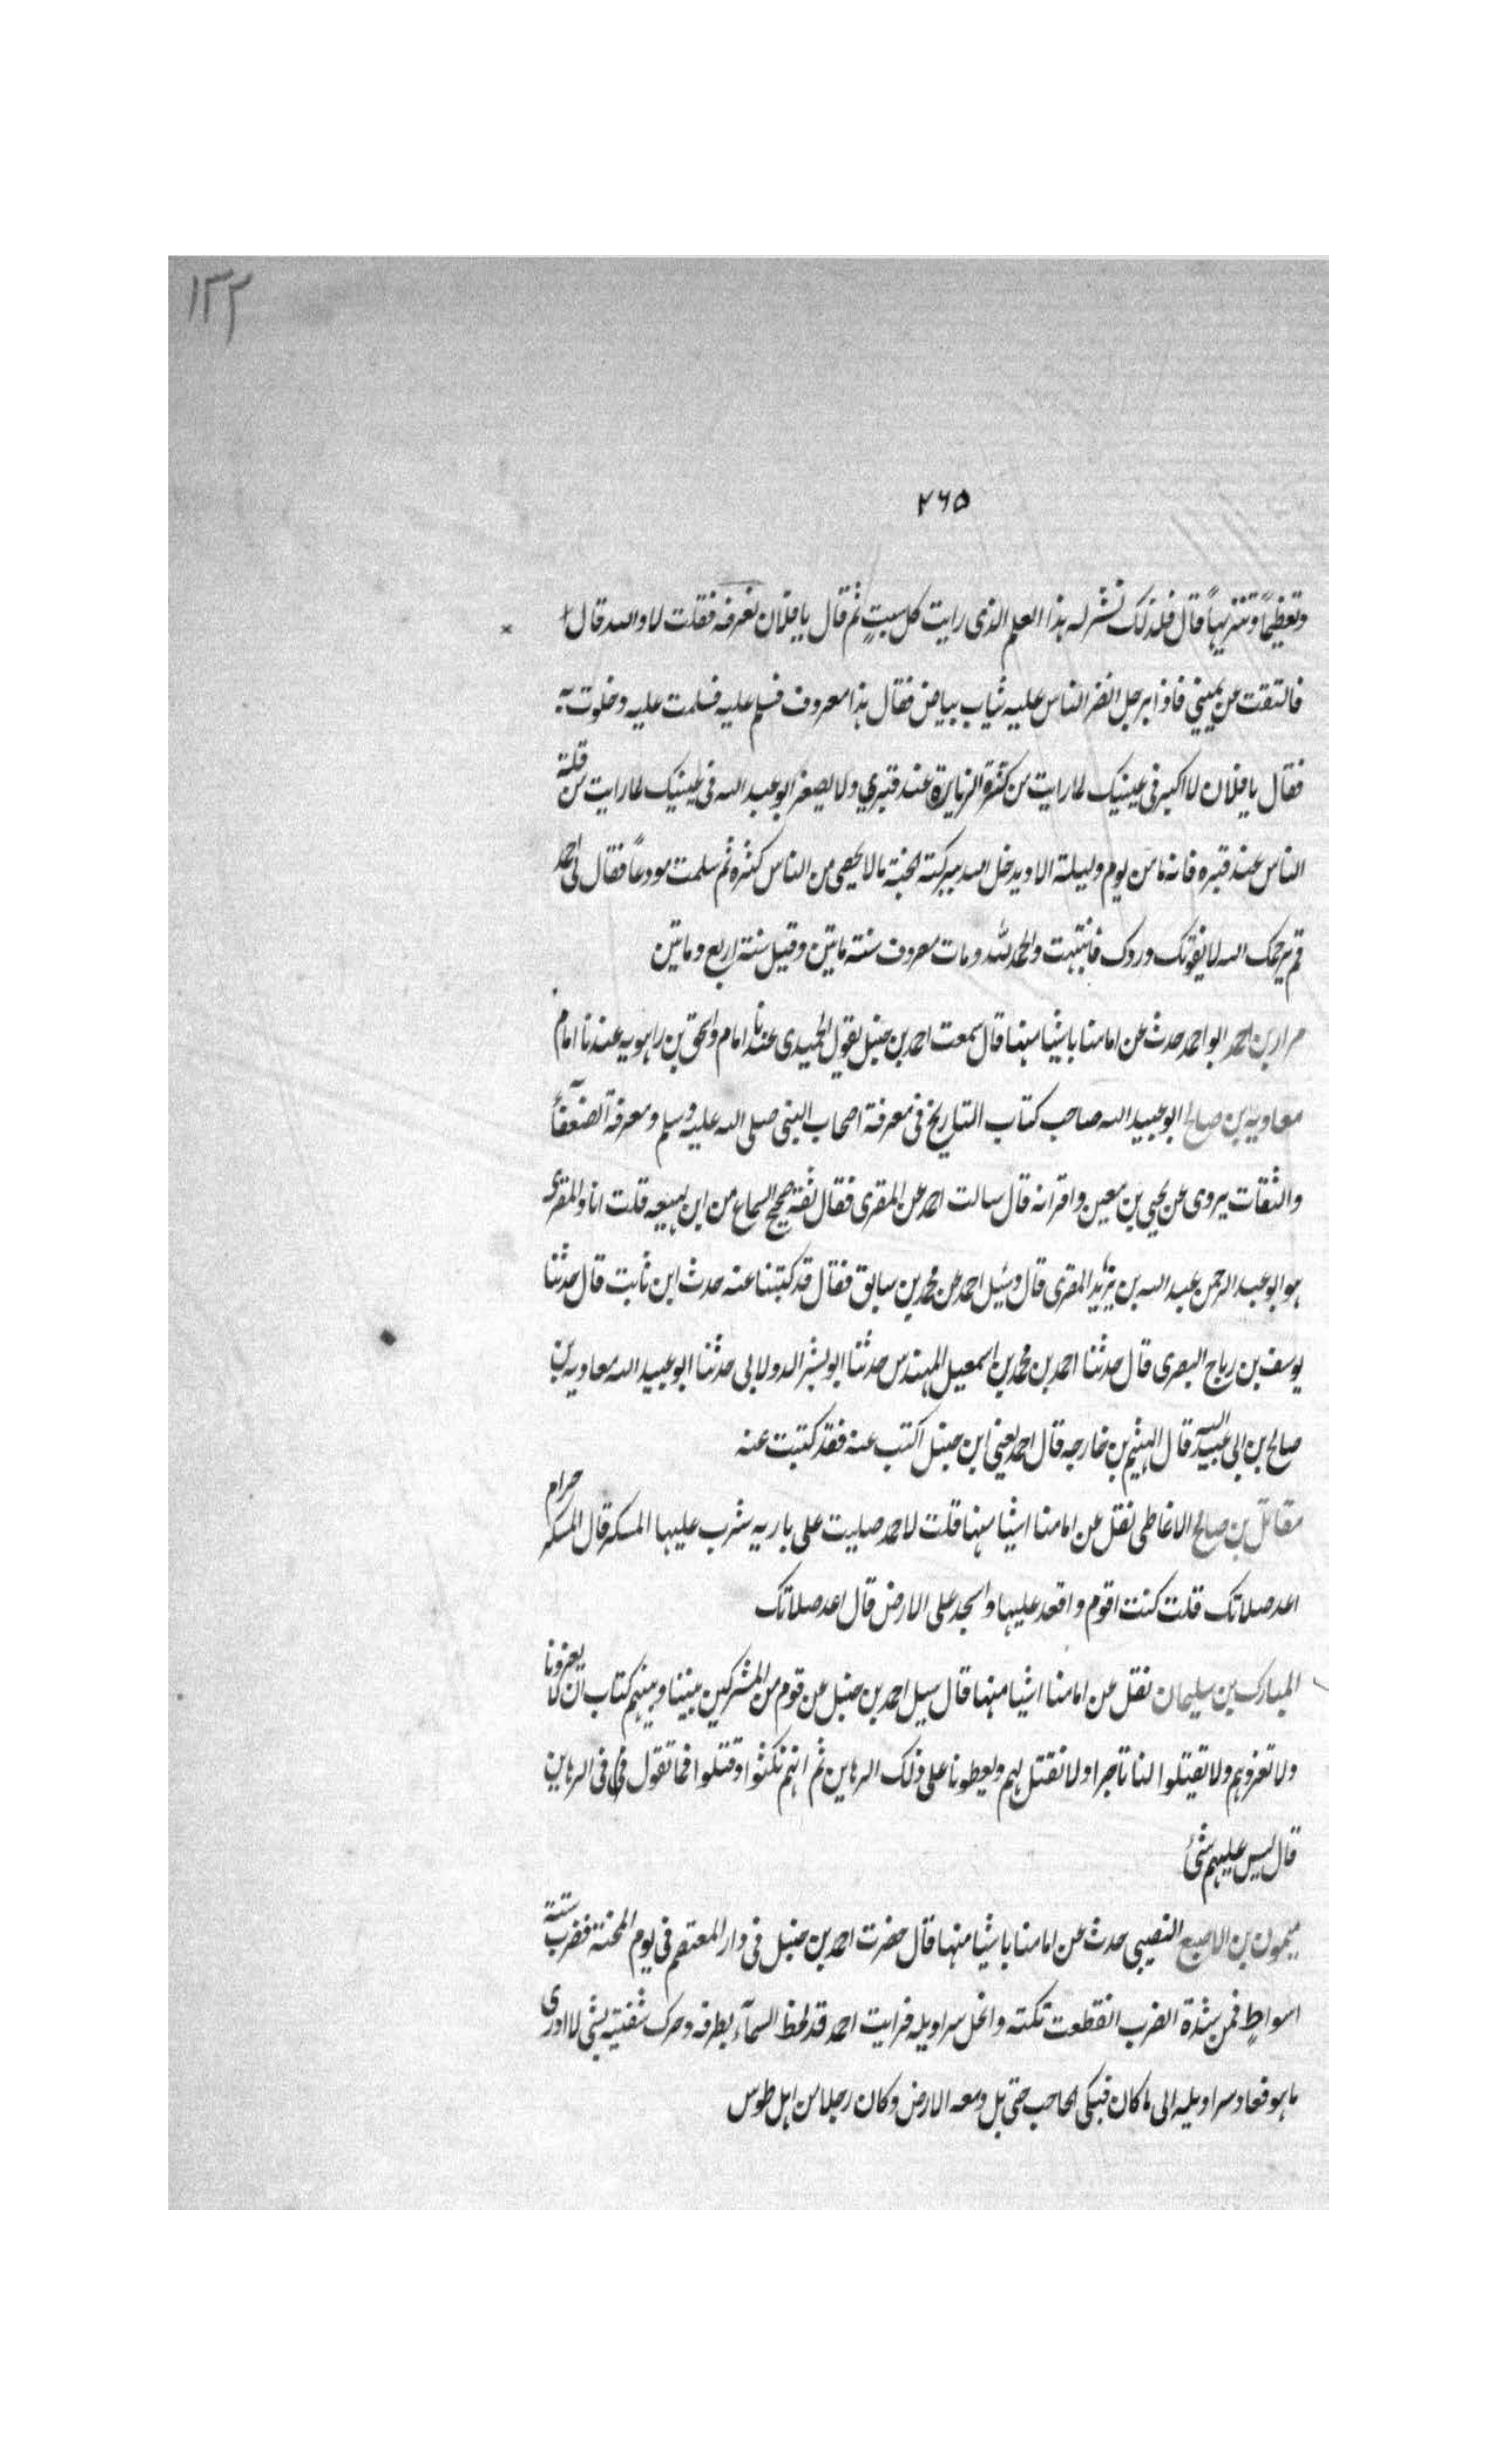 ١٣٢
٢٦٥
وتعظيماً وتنزيهاً قال فلذلك نشر له هذا العلم الذى رايت كل سبتٍ ثم قال يا فلان تعرفه فقلت لا والله قال
فالتفت عن يميني فاذا برجل انضر الناس عليه ثياب بياض فقال هذا معروف فسلم عليه فسلمت عليه وخلوت به
فقال يا فلان لا اكبر فى عينيك لما رايت من كثرة الزيارة عند قبري ولا يصغر ابو عبد الله فى عينيك لما رايت من قلة
الناس عند قبره فانه ما من يوم وليلة الا ويدخل الله ببركته الجنة ما لا يحصى من الناس كثره ثم سلمت مودعاً فقال لى احمد
قم يرحمك الله لا يفوتك وردك فانتبهت والحمد لله ومات معروف سنة مايتين وقيل سنة اربع ومايتين
مراد بن احمد ابو احمد حدث عن امامنا باشيا منها قال سمعت احمد بن حنبل يقول الحميدى عندنا امام واسحق بن راهويه عندنا امام
معاوية بن صالح ابو عبيد الله صاحب كتاب التاريخ فى معرفة اصحاب النبى صلى الله عليه وسلم ومعرفة الضعفآء
والثقات يروى عن يحيى بن معين واقرانه قال سالت احمد عن المقرى فقال ثقة صحيح السماع من ابن لهيعه قلت انا والمقرى
هو ابو عبد الرحمن عبد الله بن يزيد المقرى قال وسئل احمد عن محمد بن سابق فقال قد كتبنا عنه حدث ابن ثابت قال حدثنا
يوسف بن رباح البصرى قال حدثنا احمد بن محمد بن اسمعيل المهندس حدثنا ابو بشر الدولابى حدثنا ابو عبيد الله معاويه بن
صالح بن ابى عبيد الله قال الهيثم بن خارجه قال احمد يعنى ابن حنبل اكتب عنه فقد كتبت عنه
مقاتل بن صالح الانماطى نقل عن امامنا اشيا منها قلت لاحمد صليت على باريه شرب عليها المسكر قال المسكر حرام
اعد صلاتك قلت كنت اقوم واقعد عليها واسجد على الارض قال اعد صلاتك
المبارك بن سليمان نقل عن امامنا اشيا منها قال سيل احمد بن حنبل عن قوم من المشركين بيننا وبينهم كتاب ان لا يغزونا
ولا نغزوهم ولا يقتلوا لنا تاجرا ولا نقتل لهم ويعطونا على ذلك الرهاين ثم انهم نكثوا وقتلوا فما تقول فى فى الرهاين
قال ليس عليهم شئ
ميمون بن الاصبع النصيبى حدث عن امامنا باشيا منها قال حضرت احمد بن حنبل فى دار المعتصم فى يوم المحنة فضرب ستة
اسواطٍ فمن شدة الضرب انقطعت تكته وانحل سراويله فرايت احمد قد لحظ السمآء بطرفه وحرك شفتيه بشى لا ادرى
ما هو فعاد سراويله الى ما كان فبكى الحاجب حتى بل دمعه الارض وكان رجلا من اهل طوس